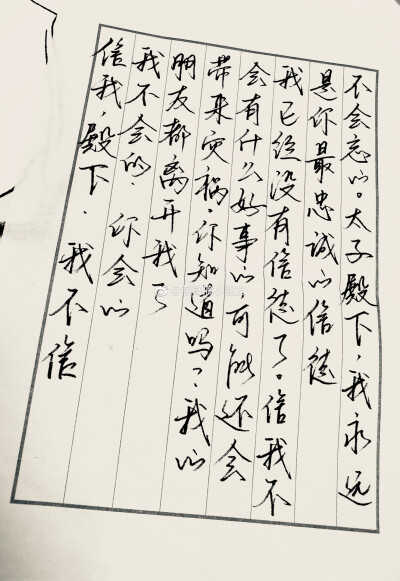 不会忘的。太子殿下，我永远
是你最忠誠的信徒
我已经没有信徒了。信我不
会有什么好事的，可能还会
带来灾祸。你知道吗？我的
朋友都离开我了
我不会的．你会的
信我，殿下．我不信